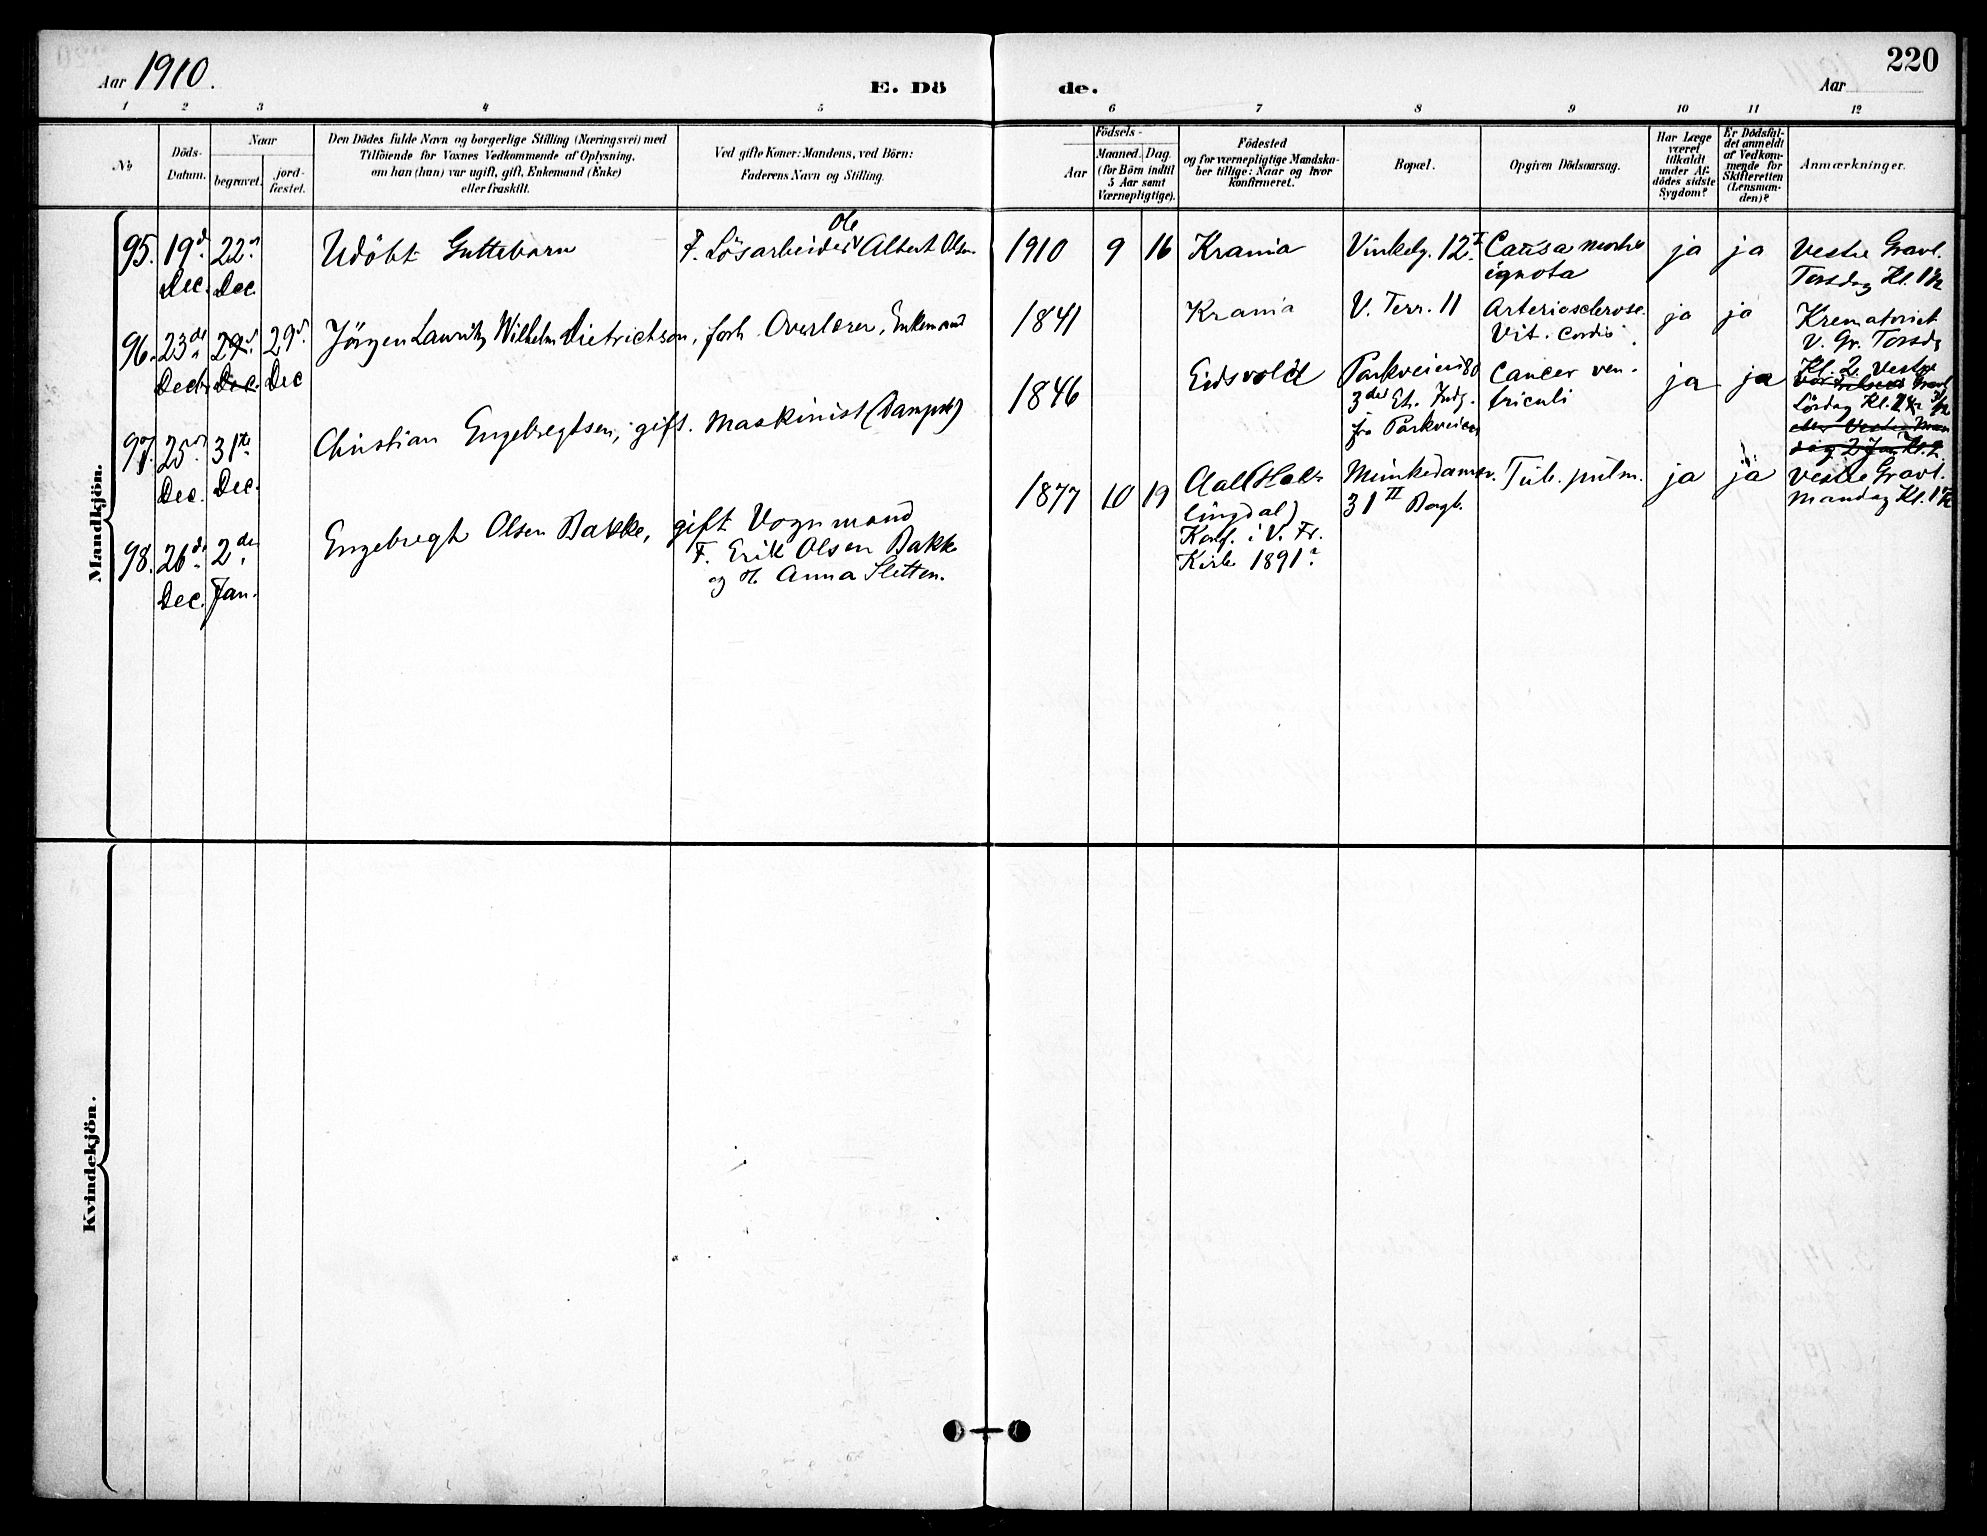 Aar 1910.
E. Dö
de.
220
Aar
1 2 3 4 5 6 7 8 9 10 11 12
No
Döds-
Datum.
Naar
begravet.
jord-
fæstet.
Den Dödes fulde Navn og borgerlige Stilling (Næringsvei) med
Tilföiende for Voxnes Vedkommende af Oplysning,
om han (hun) var ugift, gift, Enkemand (Enke)
eller fraskilt.
Ved gifte Koner: Mandens, ved Börn:
Faderens Navn og Stilling.
Födsels-
Aar
Maaned. Dag.
(for Börn indtil
5 Aar samt
Værnepligtige).
Födested
og for værnepligtige Mandska-
ber tillige: Naar og hvor
konfirmeret.
Bopæl.
Opgiven Dödsaarsag.
Har Læge
været
tilkaldt
under Af-
dödes sidste
Sygdom?
Er Dödsfal-
det anmeldt
af Vedkom-
mende for
Skifteretten
(Lensman-
den)?
Anmærkninger.
Mandkjön.
95. 19d Dec. 22n Dec.
Udöbt Guttebarn
F. Lösarbeider Ole Albert Olsen
1910 9 16 Krania
Vinkelg. 12 I
Causa mortis
ignota
ja ja
Vestre Gravl.
Torsdag Kl. 1 1/2
96. 23de Decb. 29d Dec. 29d Dec
Jörgen Lauritz Wilhelm Dietrichson, forh. Overlærer, Enkemand
1841 Krania
V. Terr. 11
Arteriosclerose.
Vit. cordis.
ja ja
Krematoriet
V. Gr. Torsdg
Kl. 2
97. 25d Dec. 31te Dec.
Christian Engebregtsen, gift. Maskinist (Dampsk)
1846 Eidsvold
Parkveien 80
3die Et. Indg.
fra Parkveien
Cancer ven-
triculi
ja ja
Vestre
Gravl
Lördag Kl.
98. 26de Dec. 2den Jan.
Engebregt Olsen Bakke, gift Vognmand
F. Erik Olsen Bakke
og H. Anna Sletten.
1877 10 19
Aal (Hal-
lingdal)
Konf. i V. Fr.
Kirke 1891?
Munkedamsv.
31 II Bagb.
Tub. pulm.
ja ja
Vestre Gravl.
Mandag Kl. 1 1/2
Kvindekjön.